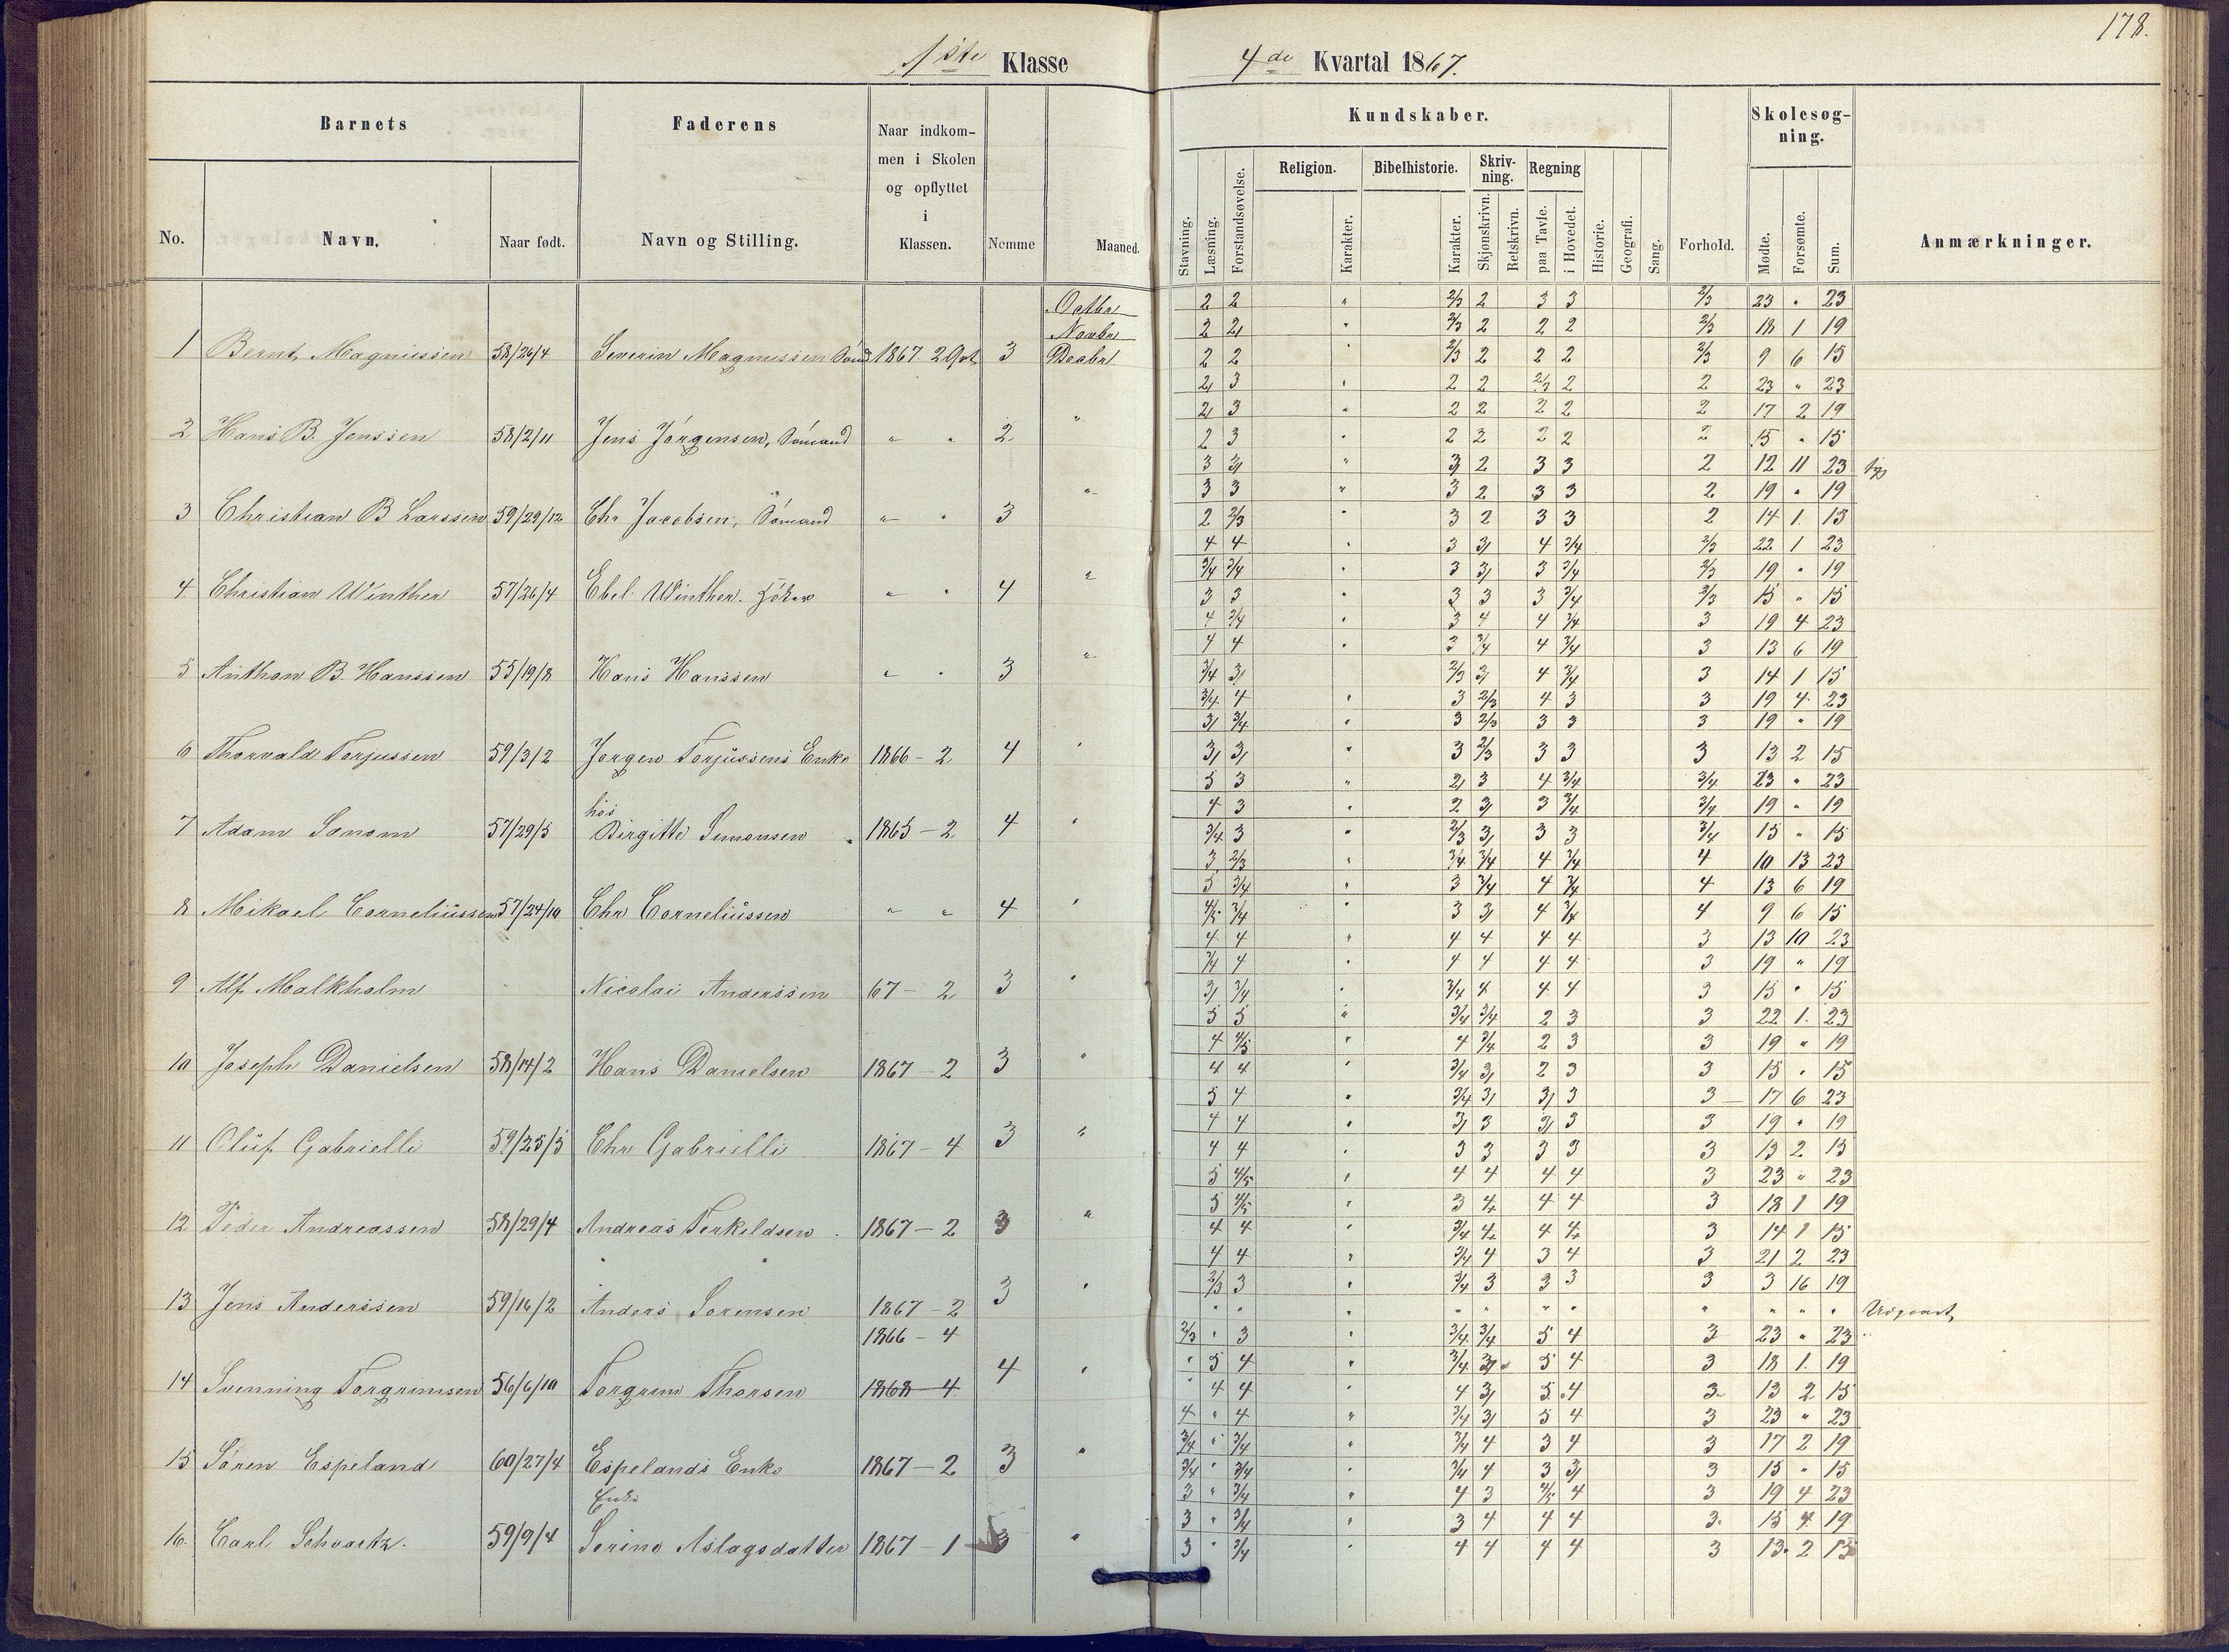 178.
1ste Klasse
4de Kvartal 1867.
Barnets
Faderens
Naar indkom-
men i Skolen
og opflyttet
i
Klassen.
Nemme
Maaned.
No.
Navn.
Naar født.
Navn og Stilling.
Kundskaber.
Skolesøg-
ning.
Stavning.
Læsning.
Forstandsøvelse.
Religion.
Karakter.
Bibelhistorie.
Karakter.
Skriv-
ning.
Skjønskrivn.
Retskrivn.
Regning
paa Tavle.
i Hovedet.
Historie.
Geografi.
Sang.
Forhold.
Mødte.
Forsømte.
Sum.
Anmærkninger.
Octbr 2 2 " 2/3 2 3 3 2/3 23 " 23
Novbr 2 2 " 2/3 2 2 2 2/3 18 1 19
1 Bernt Magnussen 58/26/4 Severin Magnussen 1867 2 Qvt 3 Decbr 2 2 " 2/3 2 2 2 2/3 9 6 15
2 3 " 2 2 2/3 2 2 23 " 23
2 3 " 2 2 2 2 2 17 2 19
2 Hans B. Jenssen 58/2/11 Jens Jørgensen, Sømand " " 2 " 2 3 " 2 2 2 2 2 15 " 15
3 3 " 3 2 3 3 2 12 11 23
3 3 " 3 2 3 3 2 19 " 19
3 Christian B Larssen 59/29/12 Chr Jacobsen, Sømand " " 3 " 2 2/3 " 3 2 3 3 2 14 1 15
4 4 " 3 3 4 3/4 2/3 22 1 23
3/4 3/4 " 3 3 3 3/4 2/3 19 " 19
4 Christian Winther 57/26/4 Ebel Winther. " " 4 " 3 3 " 3 3 3 3/4 2/3 15 " 15
4 3/4 " 3 4 4 3/4 3 19 4 23
4 4 " 3 3/4 4 3/4 3 13 6 19
5 Anthon B. Hanssen 55/19/8 Hans Hanssen " " 3 " 3/4 3 2/3 3 4 3/4 3 14 1 15
3/4 4 " 3 2/3 4 3 3 19 4 23
3 3/4 " 3 2/3 3 3 3 19 " 19
6 Thorvald Torjussen 59/3/2 Jørgen Torjussens Enke 1866 - 2 4 " 3 3 " 3 2/3 3 3 3 13 2 15
5 3 " 2 3 4 3/4 3/4 23 " 23
4 3 " 2 3 3 3/4 3/4 19 " 19
hos
7 Adam Sonom 57/29/5 Birgitte Simonsen 1865 - 2 4 " 3/4 3 " 2/3 3 3 3 3/4 15 " 15
3 2/3 " 3/4 3/4 4 3/4 4 10 13 23
5 3/4 " 3 3/4 4 3/4 4 13 6 19
8 Mikael Corneliussen 57/24/10 Chr Corneliussen " " 4 " 4/5 3/4 " 3 3 4 3/4 4 9 6 15
4 4 " 4 4 4 4 3 13 10 23
3/4 4 " 4 4 4 4 3 19 " 19
9 Alf Malkholm Nicolai Anderssen 67 - 2 3 " 3 3/4 3/4 4 4 4 3 15 " 15
5 5 " 3/4 3/4 2 3 3 22 1 23
4 4/5 " 4 3/4 2 3 3 19 " 19
10 Joseph Danielsen 58/14/2 Hans Danielsen 1867 - 2 3 " 4 4 " 3/4 3 2 3 3 15 " 15
5 4 " 3/4 3 3 3 3 17 6 23
4 4 " 3 3 3 3 3 19 " 19
11 Oluf Gabrielli 59/25/5 Chr Gabrielli 1867 - 4 3 " 4 4 " 3 3 3 3 3 13 2 15
5 4/5 " 4 4 4 4 3 23 " 23
5 4/5 " 3 4 4 4 3 18 1 19
12 Peder Andreassen 58/29/4 Andreas Terkeldsen 1867 - 2 3 " 4 4 " 3/4 4 4 4 3 14 1 15
4 4 " 3/4 4 3 4 3 21 2 23
2/3 3 " 3/4 3 3 3 3 3 16 19
13 Jens Anderssen 59/16/2 Anders Sørensen 1867 - 2 3 " " " " " " " " " " " "
1866 - 4 2/3 " 3 " 3/4 3/4 5 4 3 23 " 23
" 5 4 " 3/4 3 5 4 3 18 1 19
14 Svenning Torgrimsen 56/6/10 Torgrim Thorsen 1868 - 4 4 " " 4 4 " 4 3 5 4 3 13 2 15
4 " 4 " 3/4 3 5 4 3 23 " 23
3/4 " 3/4 " 3/4 4 3 4 3 17 2 19
15 Søren Espeland 60/27/4 Espelands Enke 1867 - 2 3 " 3/4 " 3/4 " 3/4 4 3 3 3 15 " 15
Enke 3 " 3/4 " 4 3 4/5 4 3 19 4 23
3 " 3/4 " 3 4 4 4 3 15 4 19
16. Carl Schwartz. 59/9/4 Serine Aslagsdatter 1867 - 1 3 " 3 " 3/4 " 4 4 4 4 3 13 2 15